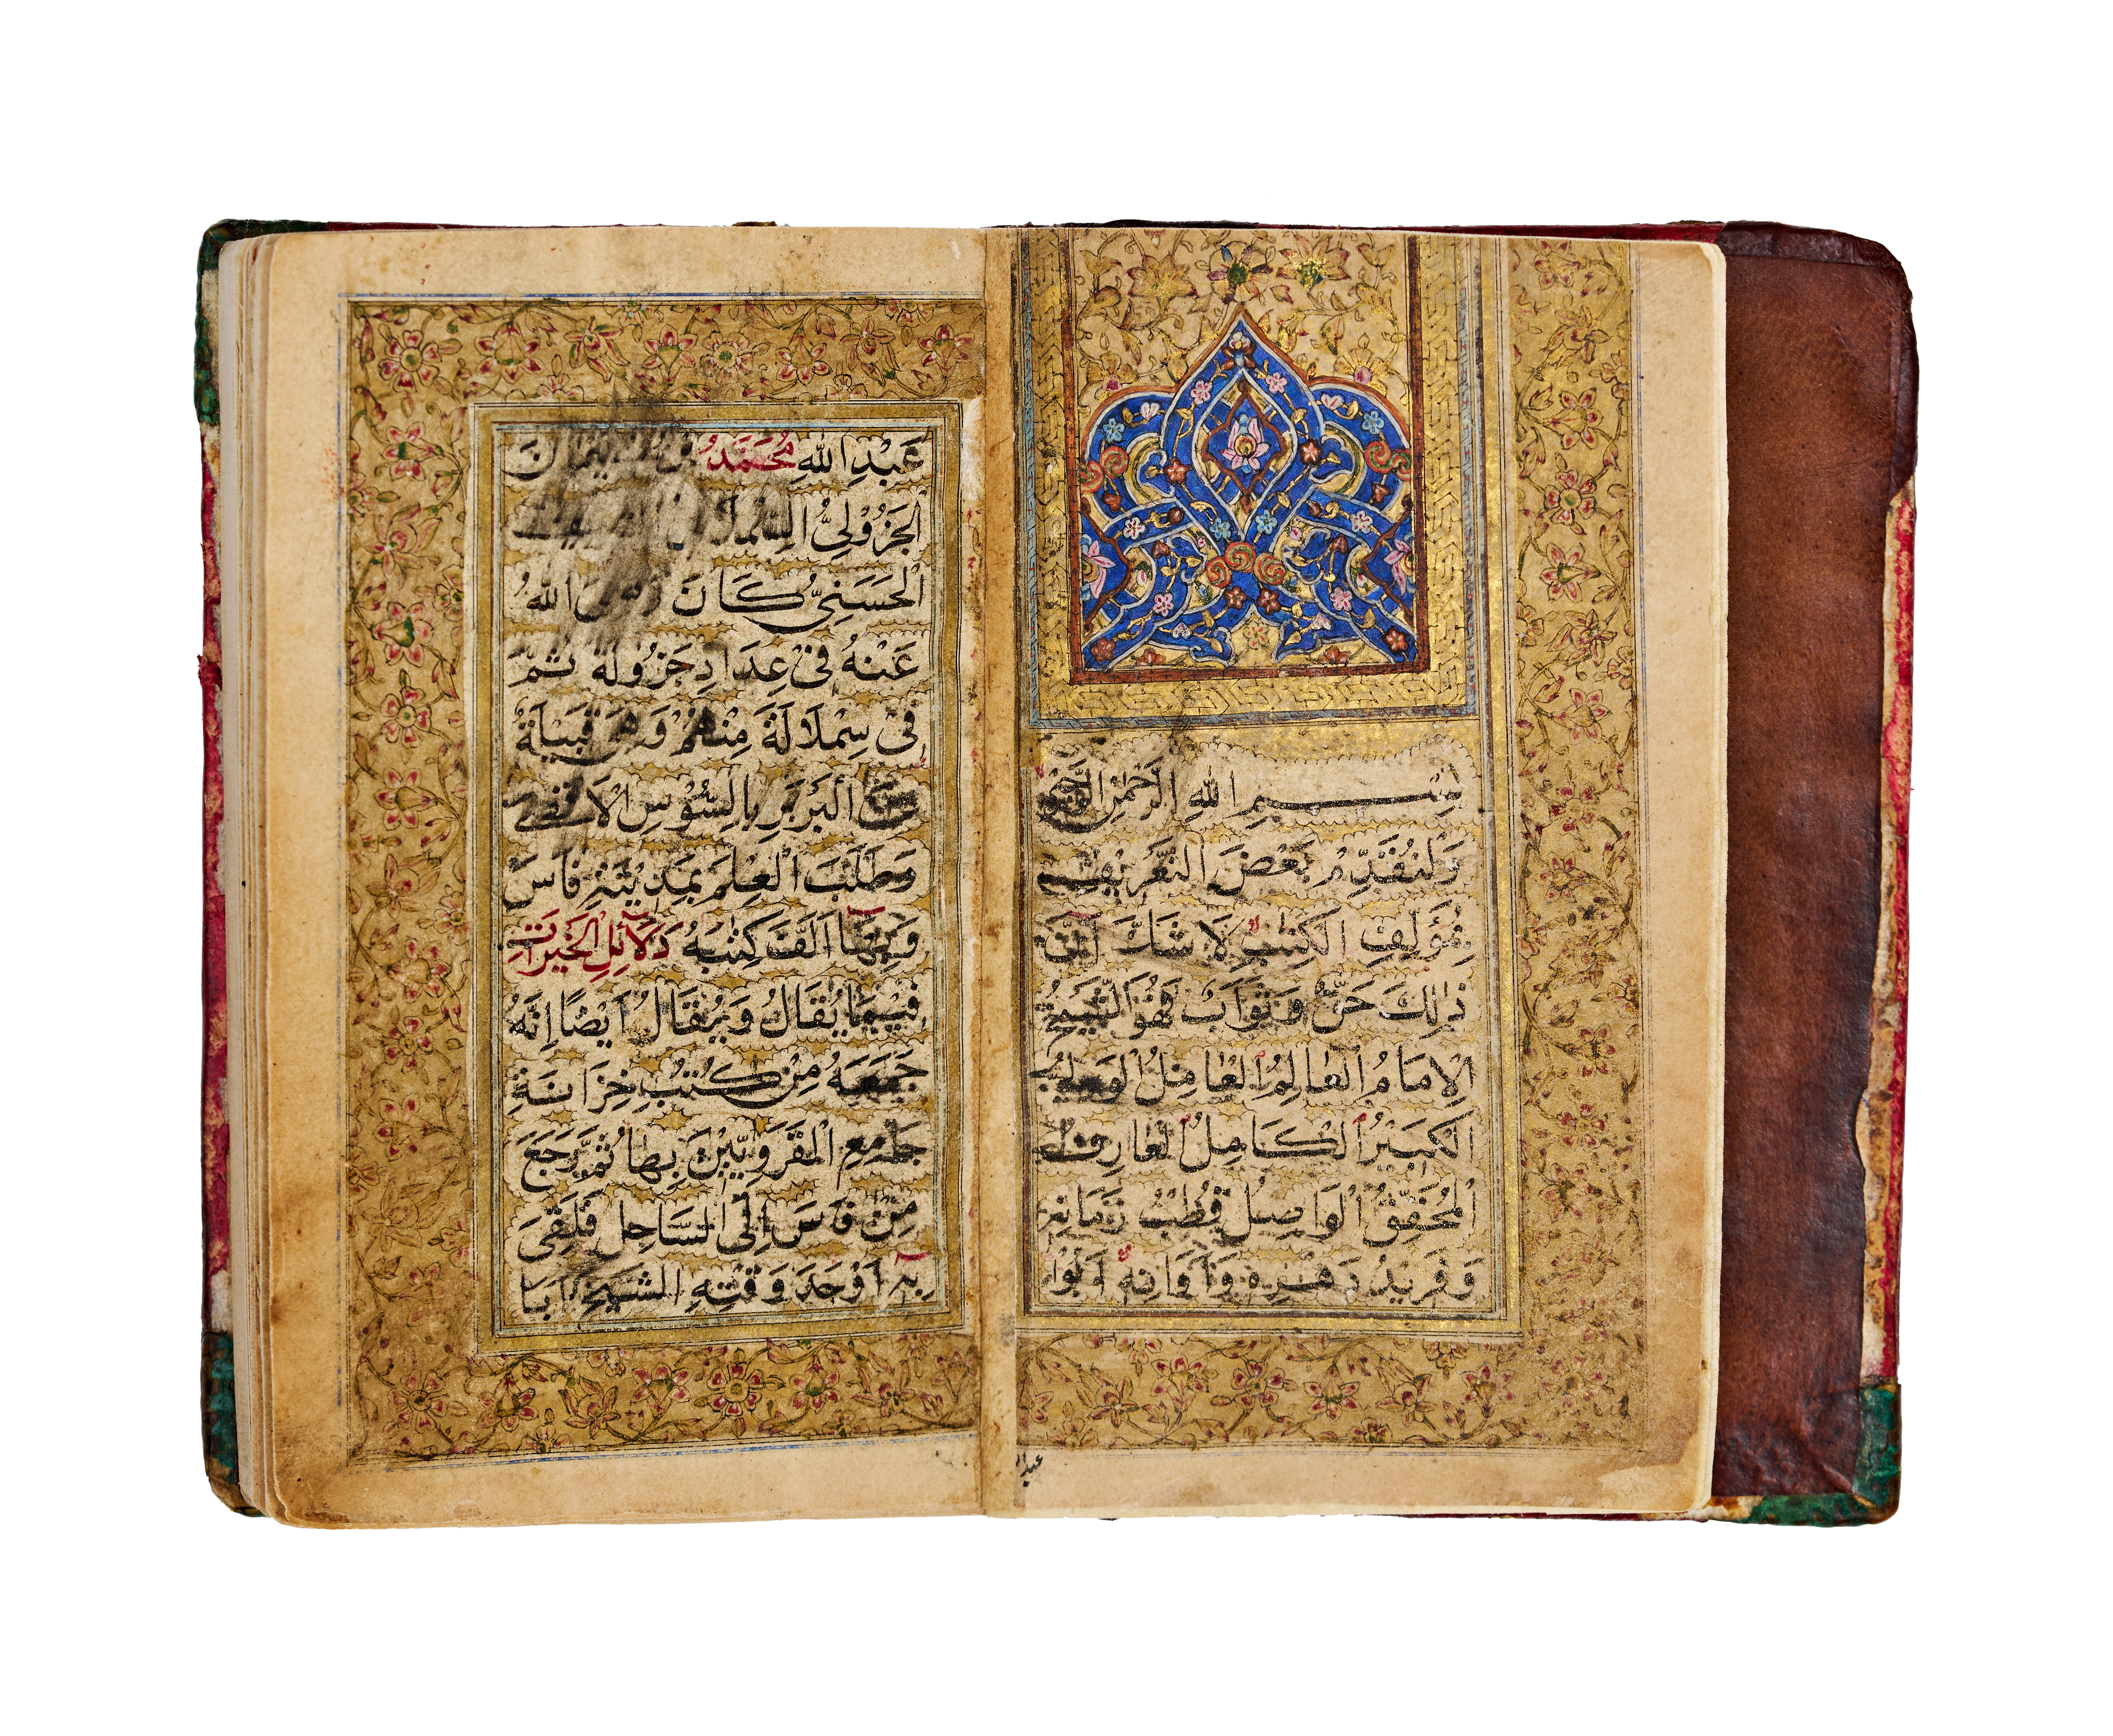 بِسْمِ اللهِ الرَّحْمٰنِ الرَّحِيْمِ
وَلْنُقَدِّمْ بَعْضَ التَّعْرِيْفِ
بِمُؤَلِّفِ الْكِتٰبِ لِاَ شَكَّ اَنَّ
ذٰلِكَ حَقٌّ وَثَوَابٌ هُوَ الشَّيْخُ
الْاِمَامُ الْعَالِمُ الْعَامِلُ الْوَلِيُّ
الْكَبِيْرُ الْكَامِلُ الْعَارِفُ
الْمُحَقِّقُ الْوَاصِلُ قُطْبُ زَمَانِهِ
وَفَرِيْدُ دَهْرِهِ وَاَوَانِهِ اَبُوْ
عبد
عَبْدِ اللهِ مُحَمَّدُ بْنُ سُلَيْمَانَ
الْجَزُوْلِيُّ السِّمْلَالِيُّ
الْحَسَنِيُّ كَانَ رَضِيَ اللهُ
عَنْهُ فِيْ عِدَادِ جَزُوْلَةَ ثُمَّ
فِيْ سِمْلَالَةَ مِنْهُمْ وَهِيَ قَبِيْلَةٌ
مِنَ الْبَرْبَرِ بِالسُّوْسِ الْاَقْصٰى
وَطَلَبَ الْعِلْمَ بِمَدِيْنَةِ فَاسَ
وَبِهَا اَلَّفَ كِتٰبَهُ دَلَآئِلَ الْخَيْرَاتِ
فِيْمَا يُقَالُ وَيُقَالُ اَيْضًا اِنَّهُ
جَمَعَهُ مِنْ كُتُبِ خِزَانَةِ
جَامِعِ الْقَرَوِيِّيْنَ بِهَا ثُمَّ رَجَعَ
مِنْ فَاسَ اِلَى السَّاحِلِ فَلَقِيَ
بِهِ اَوْحَدَ وَقْتِهِ الشَّيْخَ اَبَا